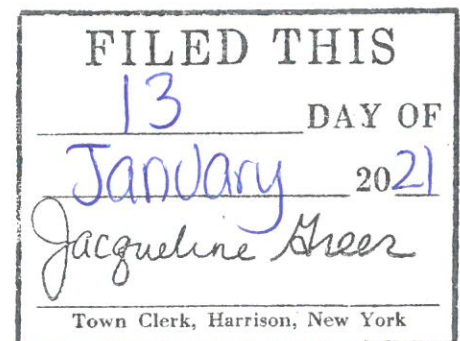 FILED THIS
13 DAY OF
January 2021
Jacqueline Greer
Town Clerk, Harrison, New York